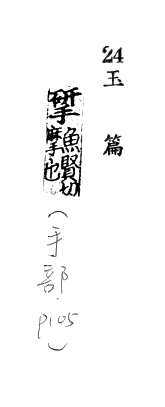 24 玉篇
揅魚賢切摩也
(手部. P.105)